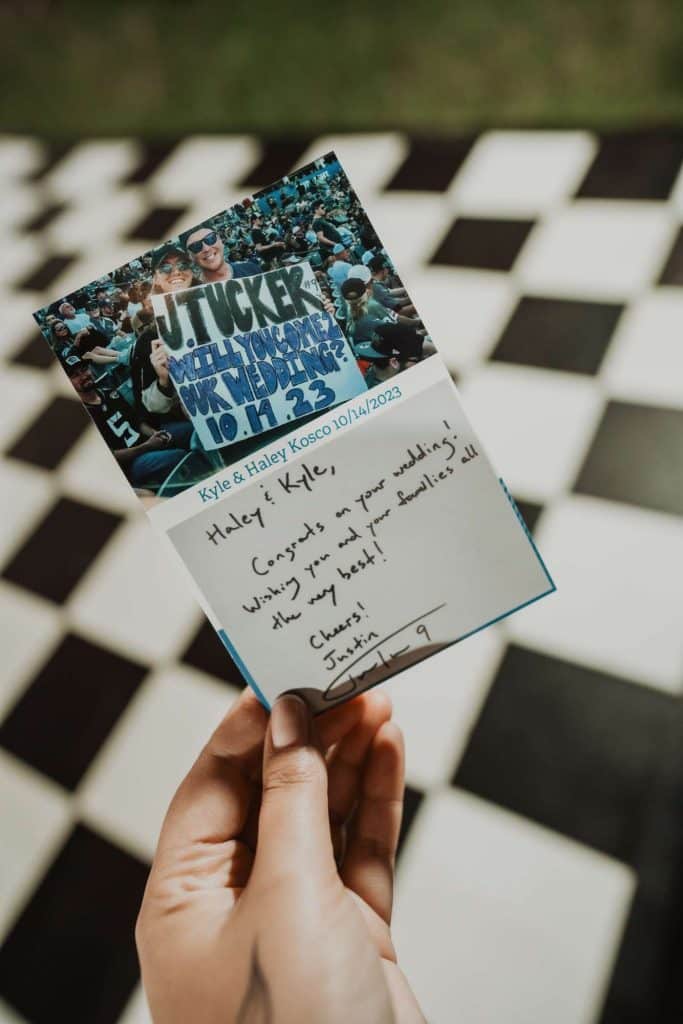 J. TUCKER #9
WILL YOU COME 2
OUR WEDDING?
10.14.23
5
Kyle & Haley Kosco 10/14/2023
Haley & Kyle,
Congrats on your wedding!
Wishing you and your families all
the very best!
Cheers!
Justin
9